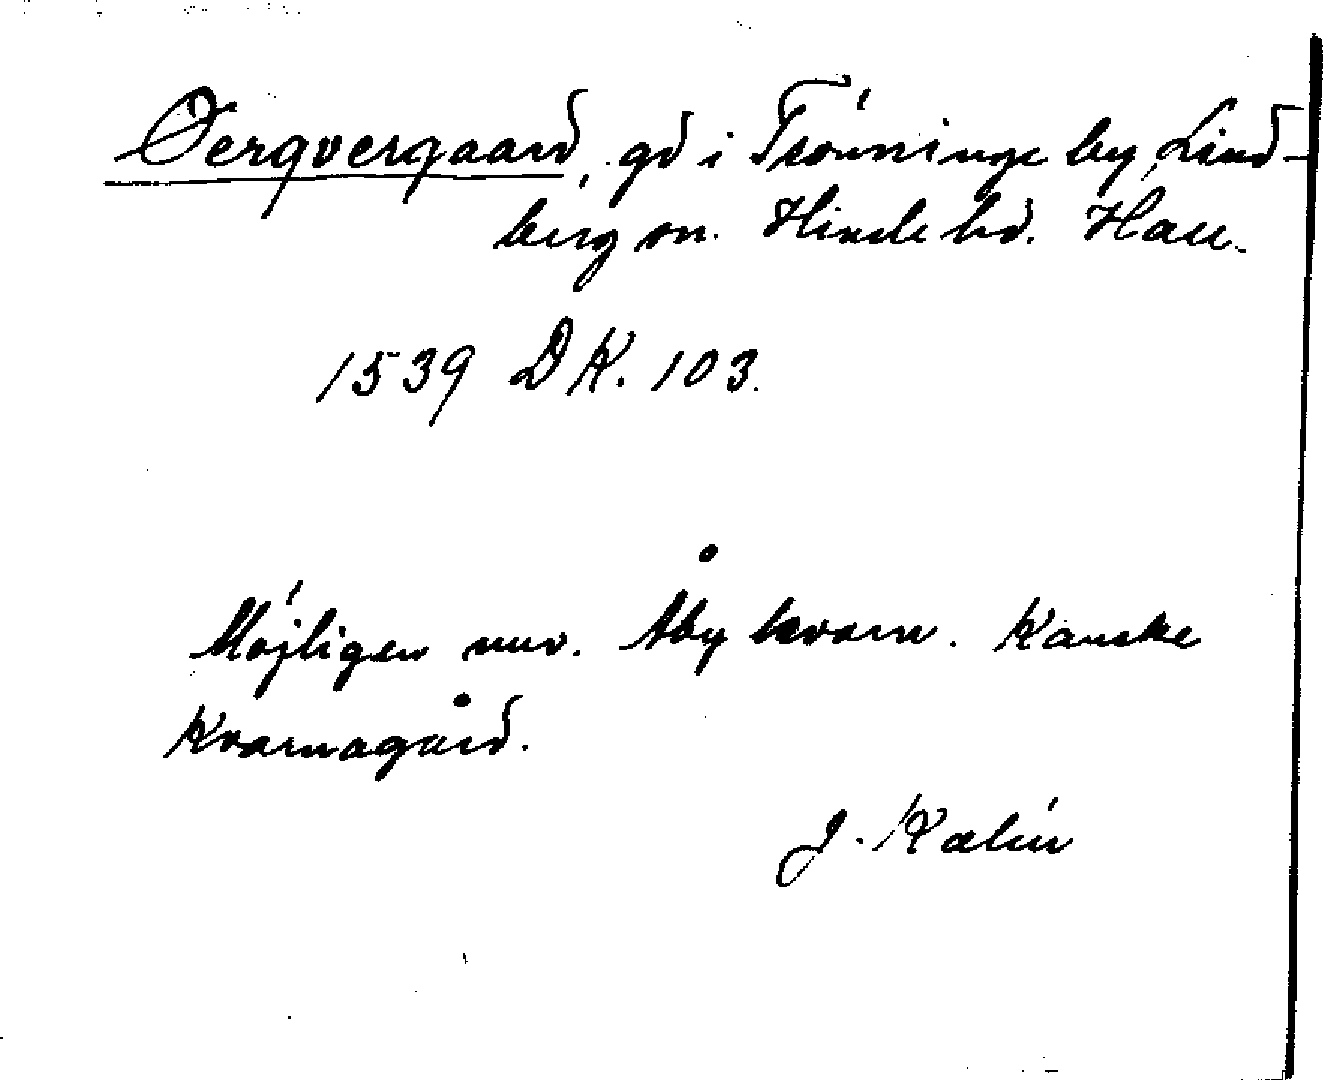 Øerqvergaard, gd i Tronninge by Lind-
berg sn. Himle hd. Hall.
1539 DK. 103.
Möjligen nuv. Åby kvarn. Kanske
Kvarnagård.
J. Kalén